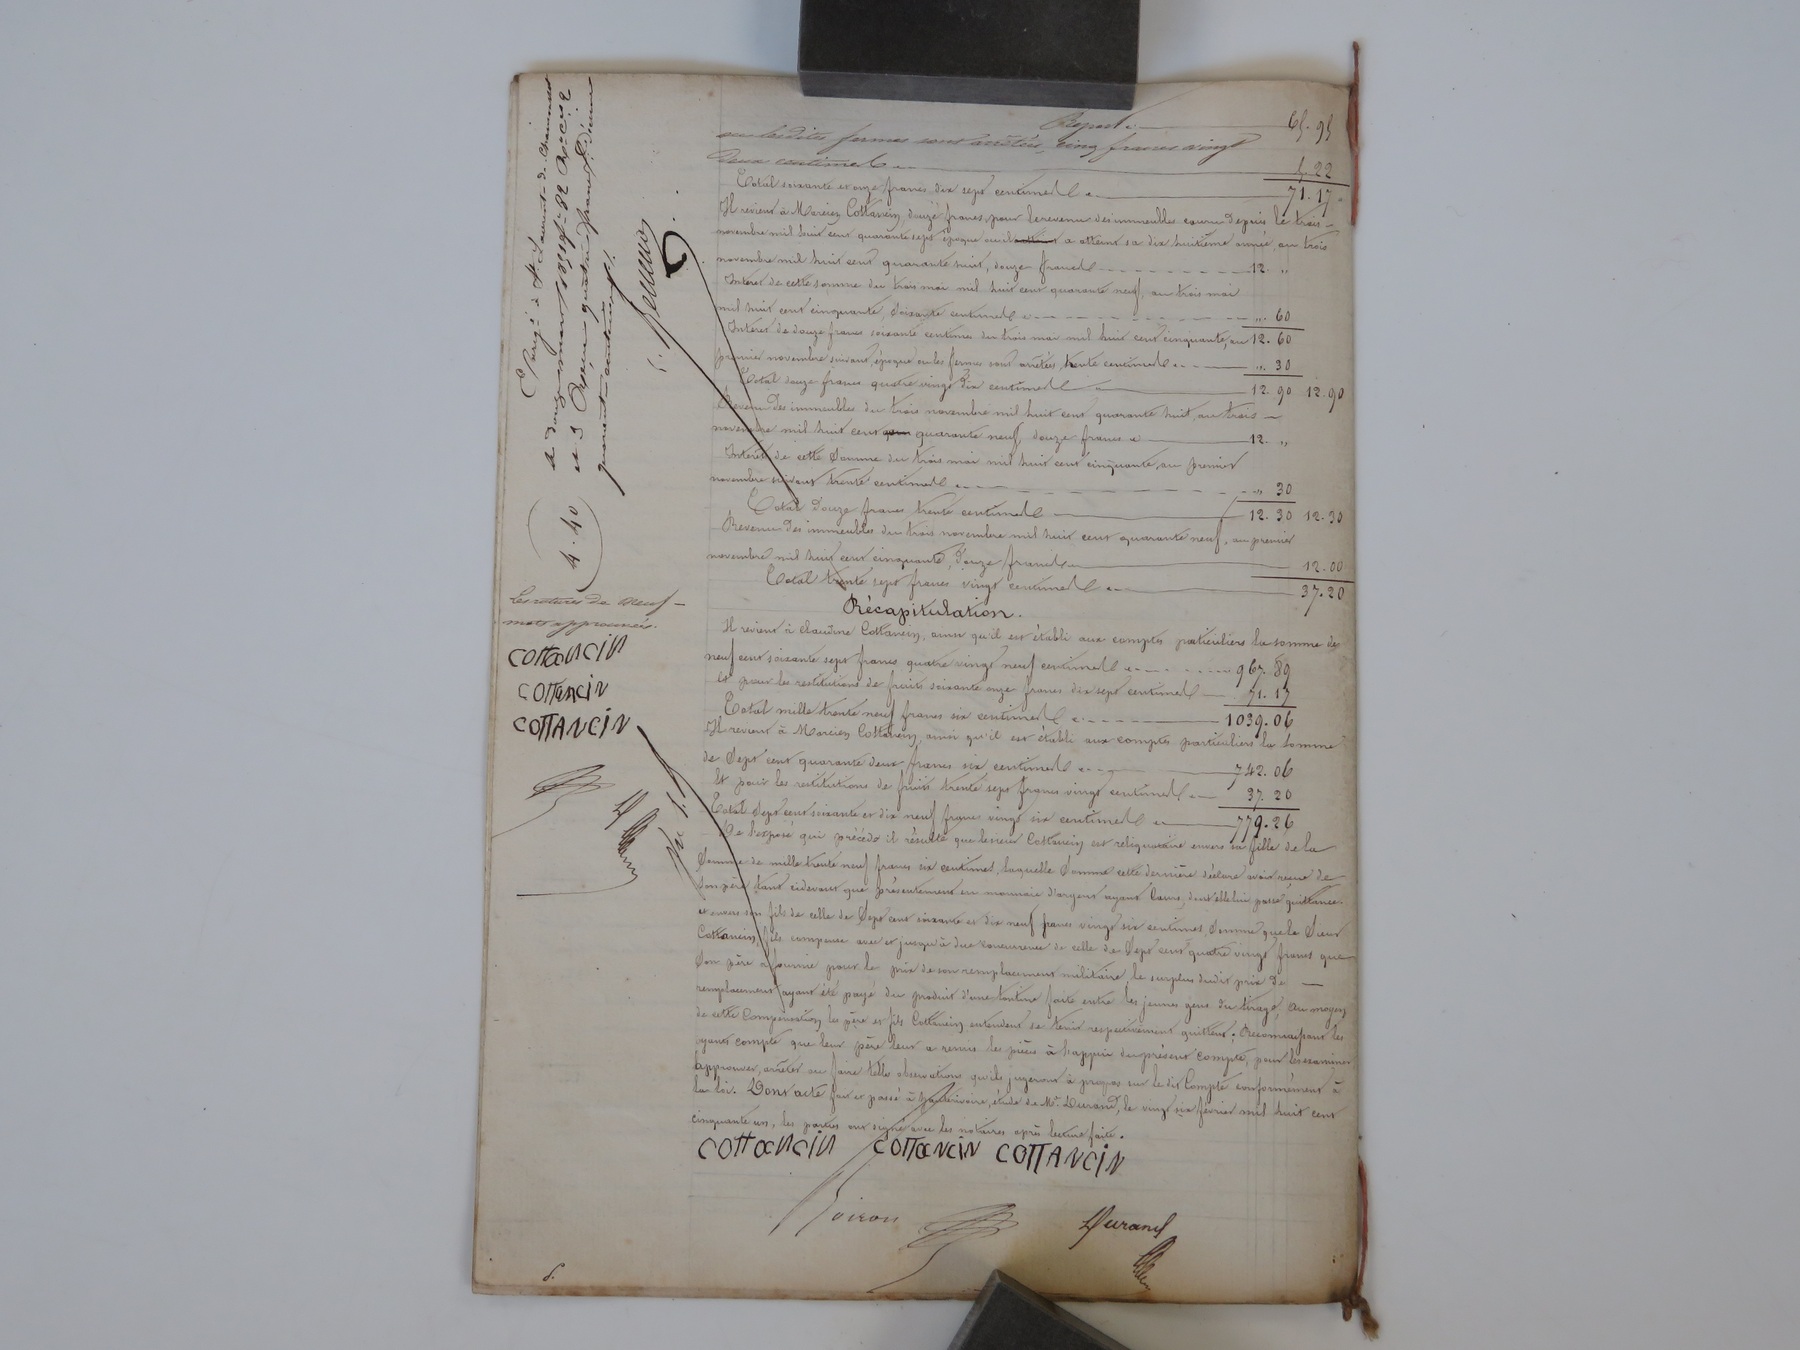 Report 65.95
ou lesdites fermes sont arrêtées, cinq francs vingt
deux centimes 5.22
Total soixante et onze francs dix sept centimes 71.17
Il revient à Marcien Cottancin, douze francs, pour le revenu des immeubles couru depuis le trois
novembre mil huit cent quarante sept époque où il a atteint sa dix huitième année, au trois
novembre mil huit cent quarante huit, douze francs 12. "
Intérêt de cette somme du trois mai mil huit cent quarante neuf, au trois mai
mil huit cent cinquante, soixante centimes ". 60
Intérêt de douze francs soixante centimes du trois mai mil huit cent cinquante, au 12.60
premier novembre suivant, époque où les fermes sont arrêtées, trente centimes ". 30
Total douze francs quatre vingt dix centimes 12.90 12.90
Revenu des immeubles du trois novembre mil huit cent quarante huit, au trois
novembre mil huit cent quarante neuf, douze francs 12. "
Intérêt de cette somme du trois mai mil huit cent cinquante, au premier
novembre suivant trente centimes ". 30
Total douze francs trente centimes 12.30 12.30
Revenu des immeubles du trois novembre mil huit cent quarante neuf, au premier
novembre mil huit cent cinquante, douze francs 12.00
Total trente sept francs vingt centimes 37.20
Récapitulation.
Il revient à Claudine Cottancin, ainsi qu'il est établi aux comptes particuliers la somme de
neuf cent soixante sept francs quatre vingt neuf centimes 967.89
et pour les restitutions de fruits soixante onze francs dix sept centimes 71.17
Total mille trente neuf francs six centimes 1039.06
Il revient à Marcien Cottancin, ainsi qu'il est établi aux comptes particuliers la somme
de sept cent quarante deux francs six centimes 742.06
Et pour les restitutions de fruits trente sept francs vingt centimes 37.20
Total sept cent soixante et dix neuf francs vingt six centimes 779.26
De l'exposé qui précède il résulte que le sieur Cottancin est reliquataire envers sa fille de la
somme de mille trente neuf francs six centimes, laquelle somme cette dernière déclare avoir reçue de
son père tant cidevant que présentement en monnaie d'argent ayant cours, dont elle lui passe quittance
et envers son fils de celle de sept cent soixante et dix neuf francs vingt six centimes, somme que le sieur
Cottancin, fils compense avec et jusqu'à due concurrence de celle de sept cent quatre vingt francs que
son père a fournie pour le prix de son remplacement militaire, le surplus dudit prix de
remplacement ayant été payé du produit d'une tontine faite entre les jeunes gens du tirage, au moyen
de cette compensation les père et fils Cottancin entendent se tenir respectivement quittes; Reconnaissant les
oyants compte que leur père leur a remis les pièces à l'appui du présent compte, pour les examiner
approuver, arrêter ou faire telle observation qu'ils jugeront à propos sur le dit compte conformément à
la loi. Dont acte fait et passé à étude de Me. Durand, le vingt six février mil huit cent
cinquante un, les parties ont signé avec les notaires après lecture faite.
COTTANCIN COTTANCIN COTTANCIN
Boiron Durand
Enrgé à St Laurent-de-Chamousset
quarante centimes
4.40
Les ratures de neuf
mots approuvées.
COTTANCIN
COTTANCIN
COTTANCIN